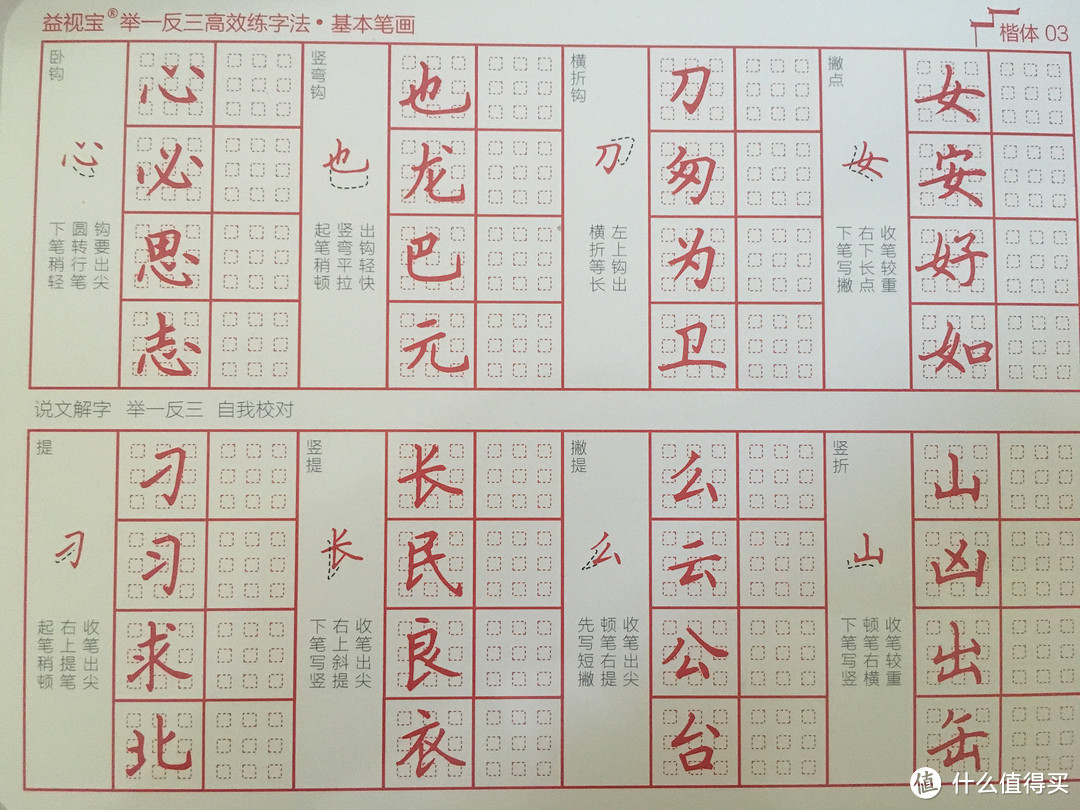 益视宝®举一反三高效练字法·基本笔画
楷体 03
卧钩
心
下笔稍轻
圆转行笔
钩要出尖
心
必
思
志
竖弯钩
也
起笔稍顿
竖弯平拉
出钩轻快
也
龙
巴
元
横折钩
刀
横折等长
左上钩出
刀
匆
为
卫
撇点
女
下笔写撇
右下长点
收笔较重
女
安
好
如
说文解字 举一反三 自我校对
提
刁
起笔稍顿
右上提笔
收笔出尖
刁
习
求
北
竖提
长
下笔写竖
右上斜提
收笔出尖
长
民
良
衣
撇提
么
先写短撇
顿笔右提
收笔出尖
么
云
公
台
竖折
山
下笔写竖
顿笔右横
收笔较重
山
凶
出
缶
值 什么值得买